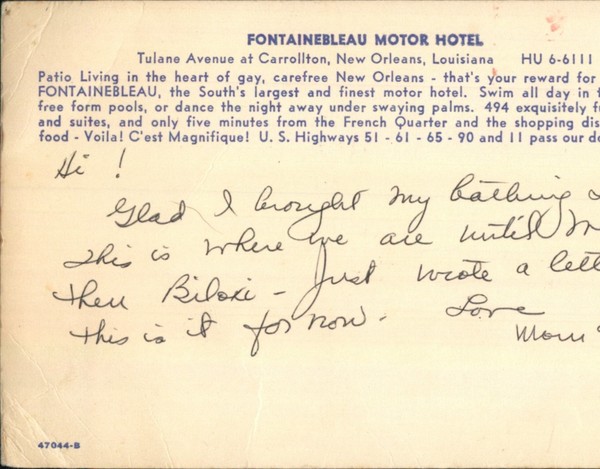 FONTAINEBLEAU MOTOR HOTEL
Tulane Avenue at Carrollton, New Orleans, Louisiana HU 6-6111
Patio Living in the heart of gay, carefree New Orleans - that's your reward for
FONTAINEBLEAU, the South's largest and finest motor hotel. Swim all day in t
free form pools, or dance the night away under swaying palms. 494 exquisitely f
and suites, and only five minutes from the French Quarter and the shopping dis
food - Voila! C'est Magnifique! U. S. Highways 51 - 61 - 65 - 90 and 11 pass our do
Hi !
Glad I brought my bathing
This is where we are until M
then Biloxi - Just wrote a lett
this is it for now.
Love
Mom
47044-B